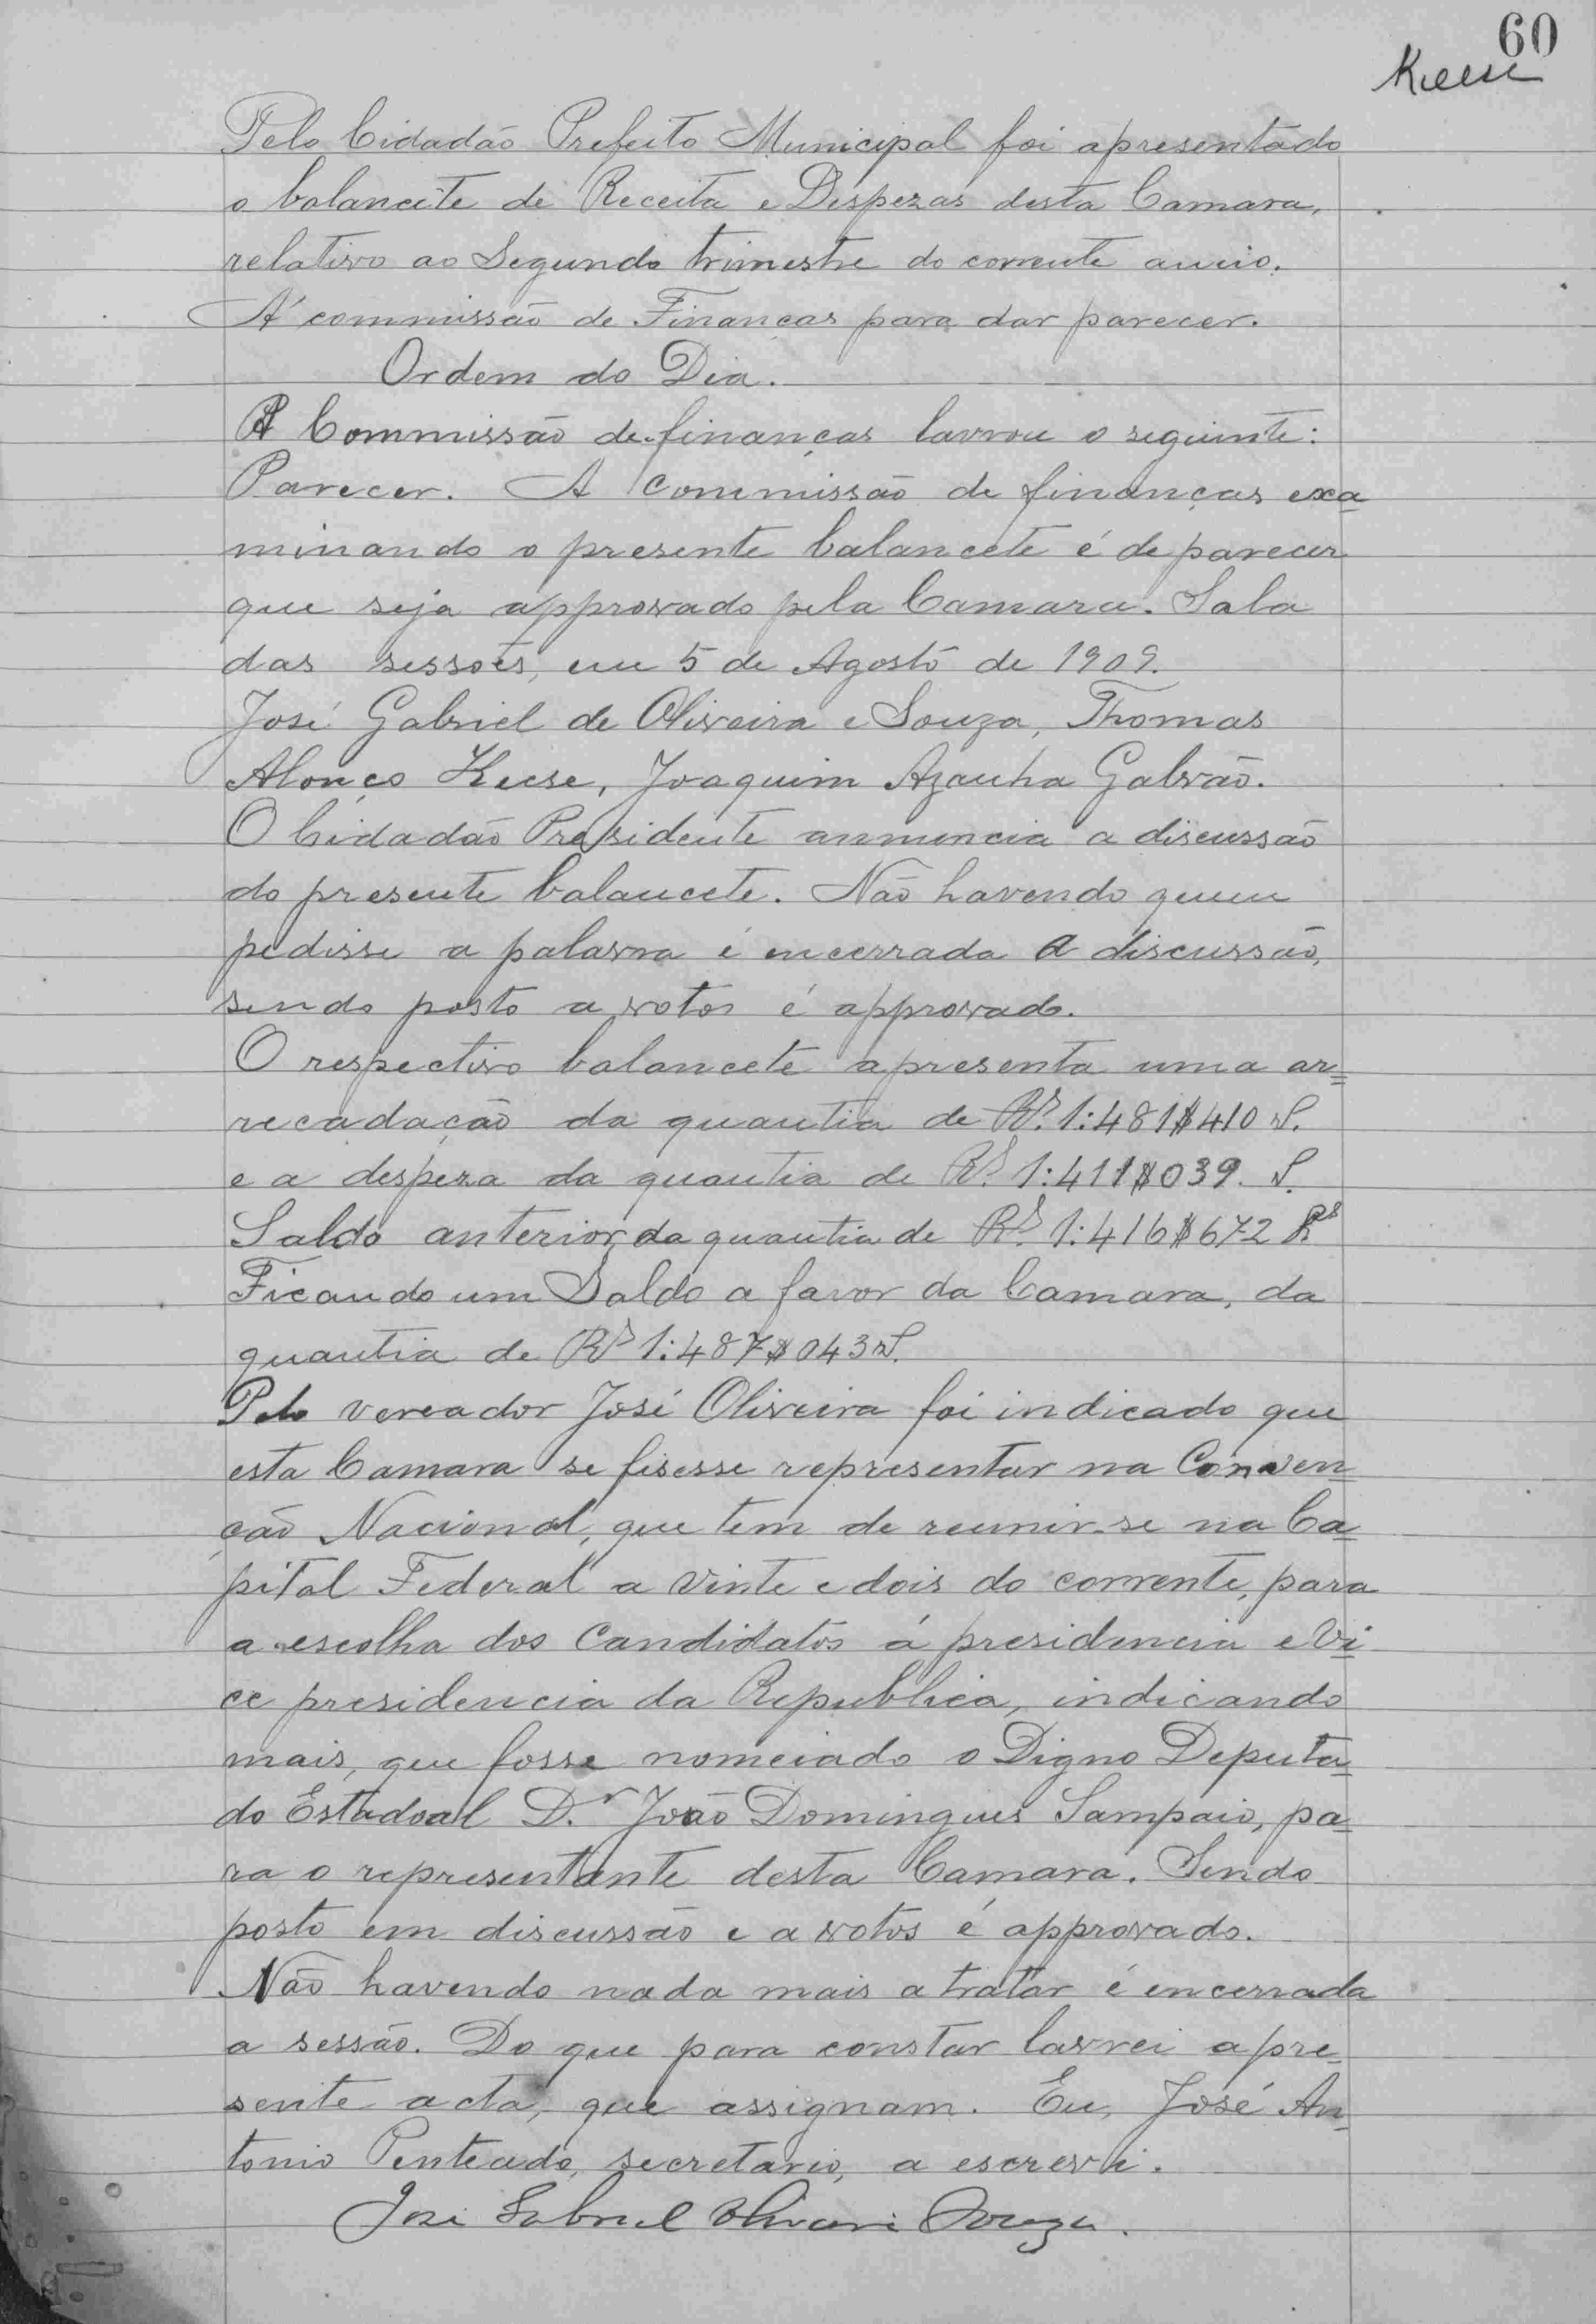 60
Keese
Pelo Cidadão Prefeito Municipal foi apresentado
o balancête de Receita e Despezas desta Camara,
relativo ao Segundo trimestre do corrente anno.
A' commissão de Finanças para dar parecer.
Ordem do Dia.
A Commissão de finanças lavrou o seguinte:
Parecer. A Commissão de finanças exa
minando o presente balancete é de parecer
que seja approvado pela Camara. Sala
das sessões, em 5 de Agosto de 1909.
José Gabriel de Oliveira e Souza, Thomas
Alonço Keese, Joaquim Azanha Galvão.
O Cidadão Presidente annuncia a discussão
do presente balancete. Não havendo quem
pedisse a palavra é encerrada a discussão,
sendo posto a votos é approvado.
O respectivo balancete apresenta uma ar=
recadação da quantia de Rs. 1:481$410 S.
e a despeza da quantia de Rs. 1:411$039. S.
Saldo anterior, da quantia de Rs. 1:416$672 Rs
Ficando um Saldo a favor da Camara, da
quantia de Rs 1:487$043 S.
Pelo vereador José Oliveira foi indicado que
esta Camara se fisesse representar na Conven=
ção Nacional, que tem de reunir-se na Ca=
pital Federal a vinte e dois do corrente, para
a escolha dos Candidatos á presidencia e Vi=
ce presidencia da Republica, indicando
mais, que fosse nomeiado o Digno Deputa=
do Estadoal D.r João Domingues Sampaio, pa=
ra o representante desta Camara. Sendo
posto em discussão e a votos é approvado.
Não havendo nada mais a tratar é encerrada
a sessão. Do que para constar lavrei a pre=
sente acta, que assignam. Eu, José An=
tonio Penteado, secretario, a escrevi.
José Gabriel Oliveira Souza.